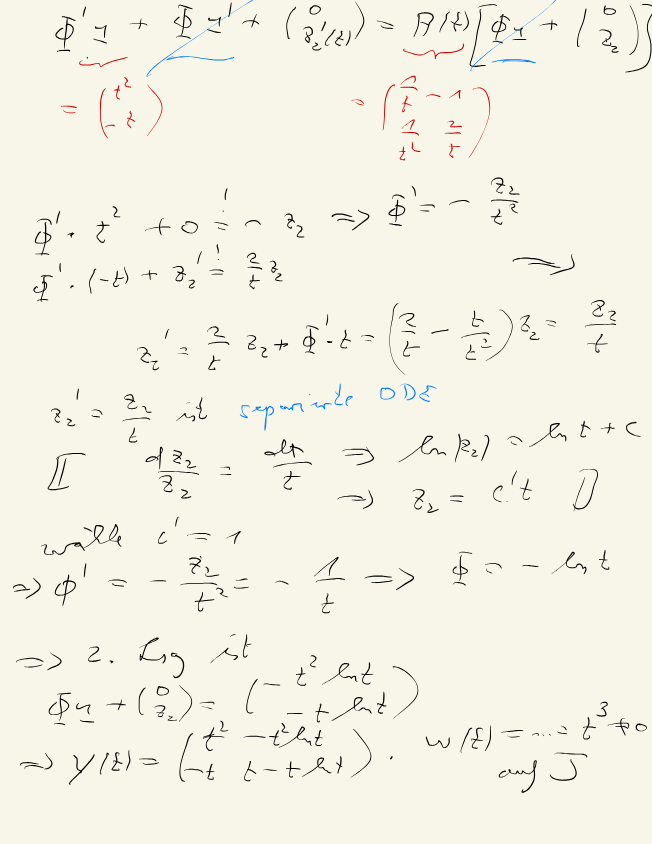 Φ' y + Φ y' + ( 0 z₂'(t) ) = A(t) [ Φ y + ( 0 z₂ ) ]
= ( t² -t ) = ( 1/t -1 1/t² 2/t )
Φ' · t² + 0 =! - z₂ ⇒ Φ' = - z₂/t²
Φ' · (-t) + z₂' =! 2/t z₂ ⇒
z₂' = 2/t z₂ + Φ' · t = ( 2/t - t/t² ) z₂ = z₂/t
z₂' = z₂/t ist separierte ODE
[ dz₂/z₂ = dt/t ⇒ ln|z₂| = ln t + c
⇒ z₂ = c' t ]
wähle c' = 1
⇒ ϕ' = - z₂/t² = - 1/t ⇒ Φ = - ln t
⇒ 2. Lsg ist
Φ y + ( 0 z₂ ) = ( -t² ln t -t ln t )
⇒ Y(t) = ( t² -t² ln t -t t - t ln t ) . w(t) = ... = t³ ≠ 0
auf J